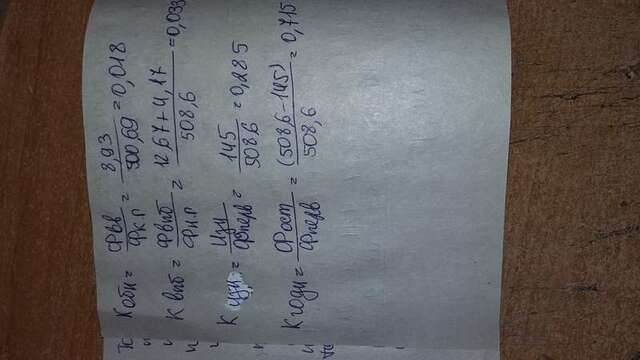 К обн = Фвв / Ф к.г = 8,93 / 500,69 = 0,018
К выб = Фвыб / Ф н.г = 12,67+4,17 / 508,6 = 0,033
К изн = Изн / Фперв = 145 / 508,6 = 0,285
К годн = Ф ост / Фперв = (508,6-145) / 508,6 = 0,715